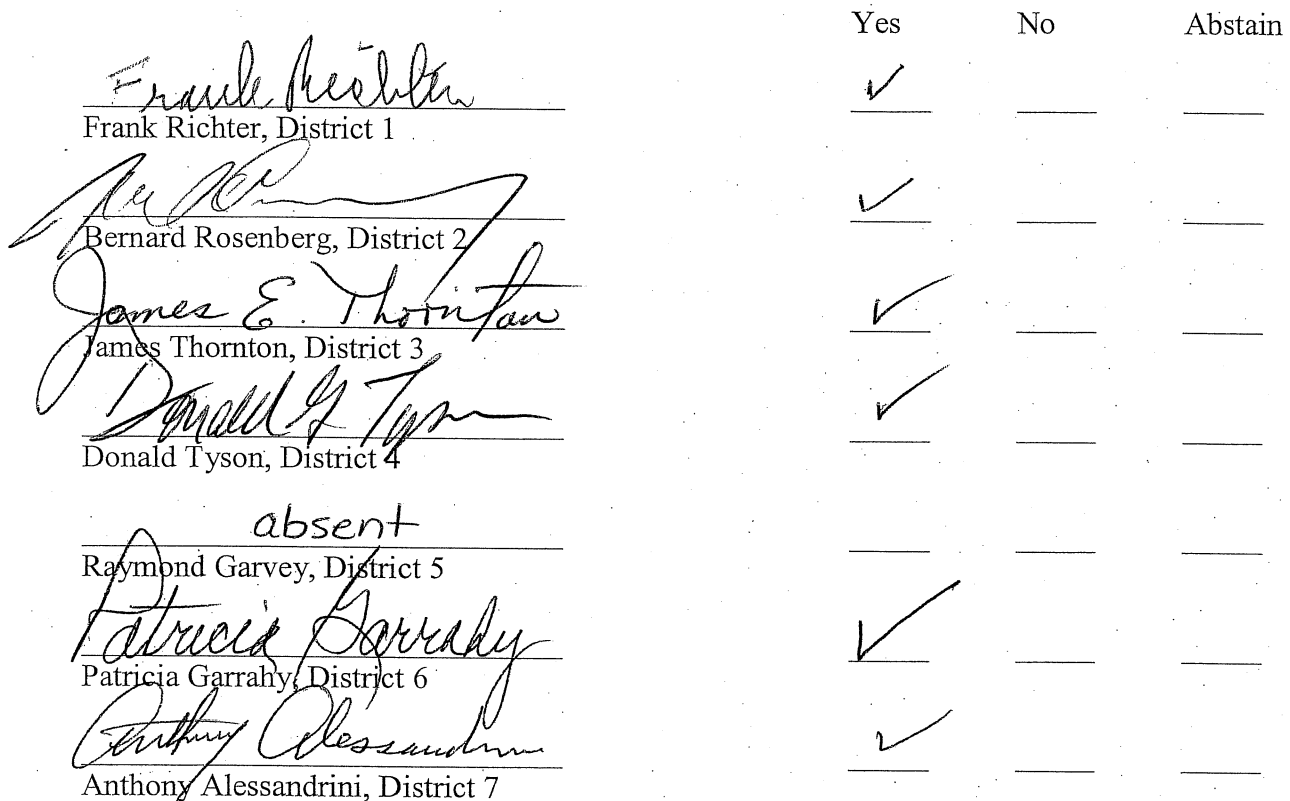 Yes No Abstain
Frank Richter ✓
Frank Richter, District 1
✓
Bernard Rosenberg, District 2
James E. Thornton ✓
James Thornton, District 3
Donald G Tyson ✓
Donald Tyson, District 4
absent
Raymond Garvey, District 5
Patricia Garrahy ✓
Patricia Garrahy, District 6
Anthony Alessandrini ✓
Anthony Alessandrini, District 7